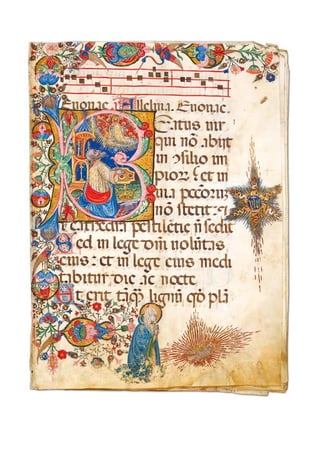 Euouae Alleluia. Euouae.
B Eatus uir
qui nō abiit
in ꝯsilio im
pioꝝ et in
uia peccatoꝝ
nō stetit: et ī
cathedra pestilētie nō sedit
Sed in lege dn̄i uolūtas
eius: et in lege eius medi
tabitur die ac nocte
Et erit tāq̄ lignū qd̄ plā